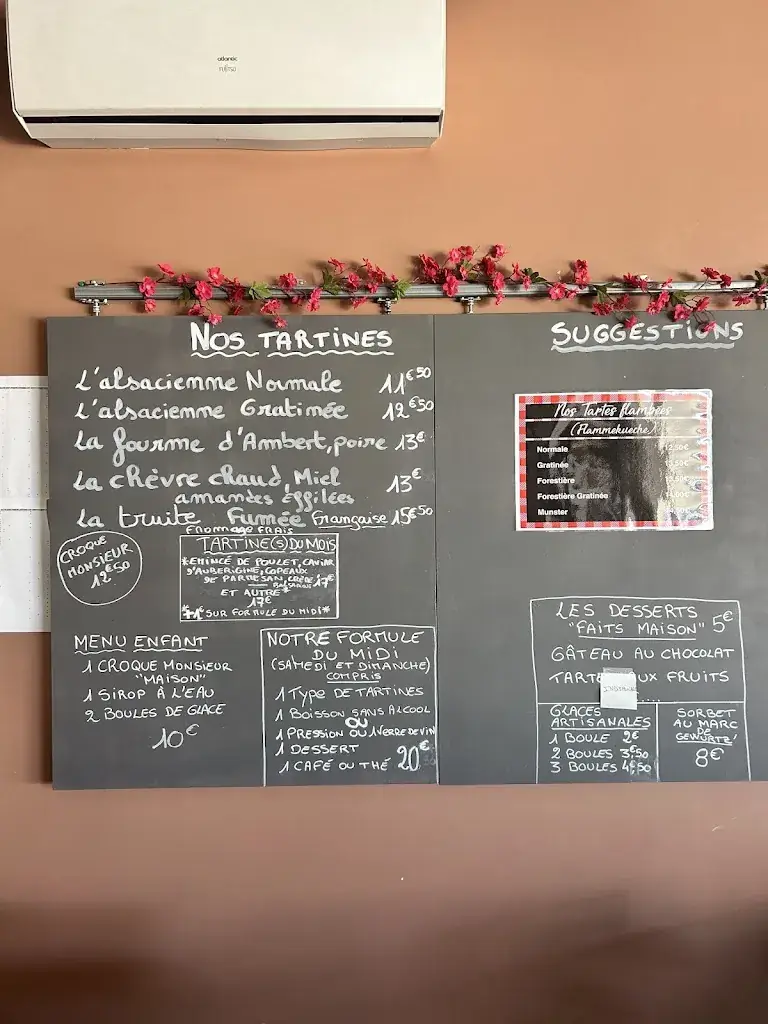 atlantic
FUJITSU
NOS TARTINES
L'alsacienne Normale 11€50
L'alsacienne Gratinée 12€50
La fourme d'Ambert, poire 13€
La chèvre chaud, Miel 13€
amandes effilées
La truite Fumée Française 15€50
fromage frais
CROQUE
MONSIEUR
12€50
TARTINE(S) DU MOIS
*EMINCÉ DE POULET, CAVIAR
D'AUBERGINE, COPEAUX
DE PARMESAN, CRÈME 17€
BALSAMIQ
ET AUTRE*
17€
SUR FORMULE DU MIDI*
MENU ENFANT
1 CROQUE MONSIEUR
"MAISON"
1 SIROP À L'EAU
2 BOULES DE GLACE
10€
NOTRE FORMULE
DU MIDI
(SAMEDI ET DIMANCHE)
COMPRIS
1 TYPE DE TARTINES
1 BOISSON SANS ALCOOL
OU
1 PRESSION OU 1 VERRE DE VIN
1 DESSERT
1 CAFÉ OU THÉ 20€
SUGGESTIONS
Nos Tartes flambées
(Flammekueche)
Normale 12,50€
Gratinée
Forestière
Forestière Gratinée
Munster
LES DESSERTS
"FAITS MAISON" 5€
GÂTEAU AU CHOCOLAT
TARTE AUX FRUITS
GLACES
ARTISANALES
1 BOULE 2€
2 BOULES 3€50
3 BOULES 4€50
SORBET
AU MARC
DE
GEWURTZ!
8€